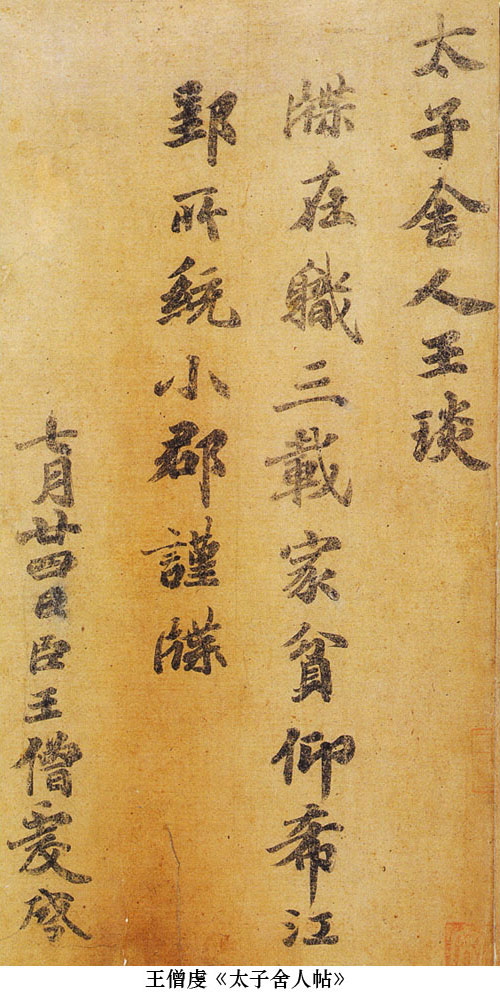 太子舍人王琰
牒在職三載家貧仰希江
郢所統小郡謹牒
七月廿四日臣王僧虔啓
王僧虔《太子舍人帖》